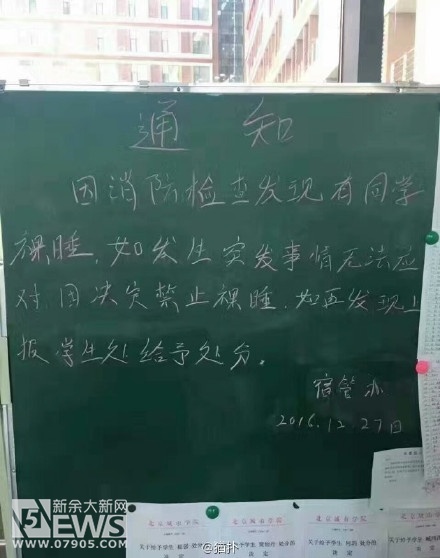 通 知
因消防检查发现有同学
裸睡,如发生突发事情无法应
对因决定禁止裸睡,如再发现上
报学生处给予处分。
宿管办
2016.12.27日
北京城市学院
北京城市学院
北京城市学院
关于给予学生
处分的
决定
关于给予学生
处分的
决定
新余大新网
NEWS
www.07905.com
@猫扑